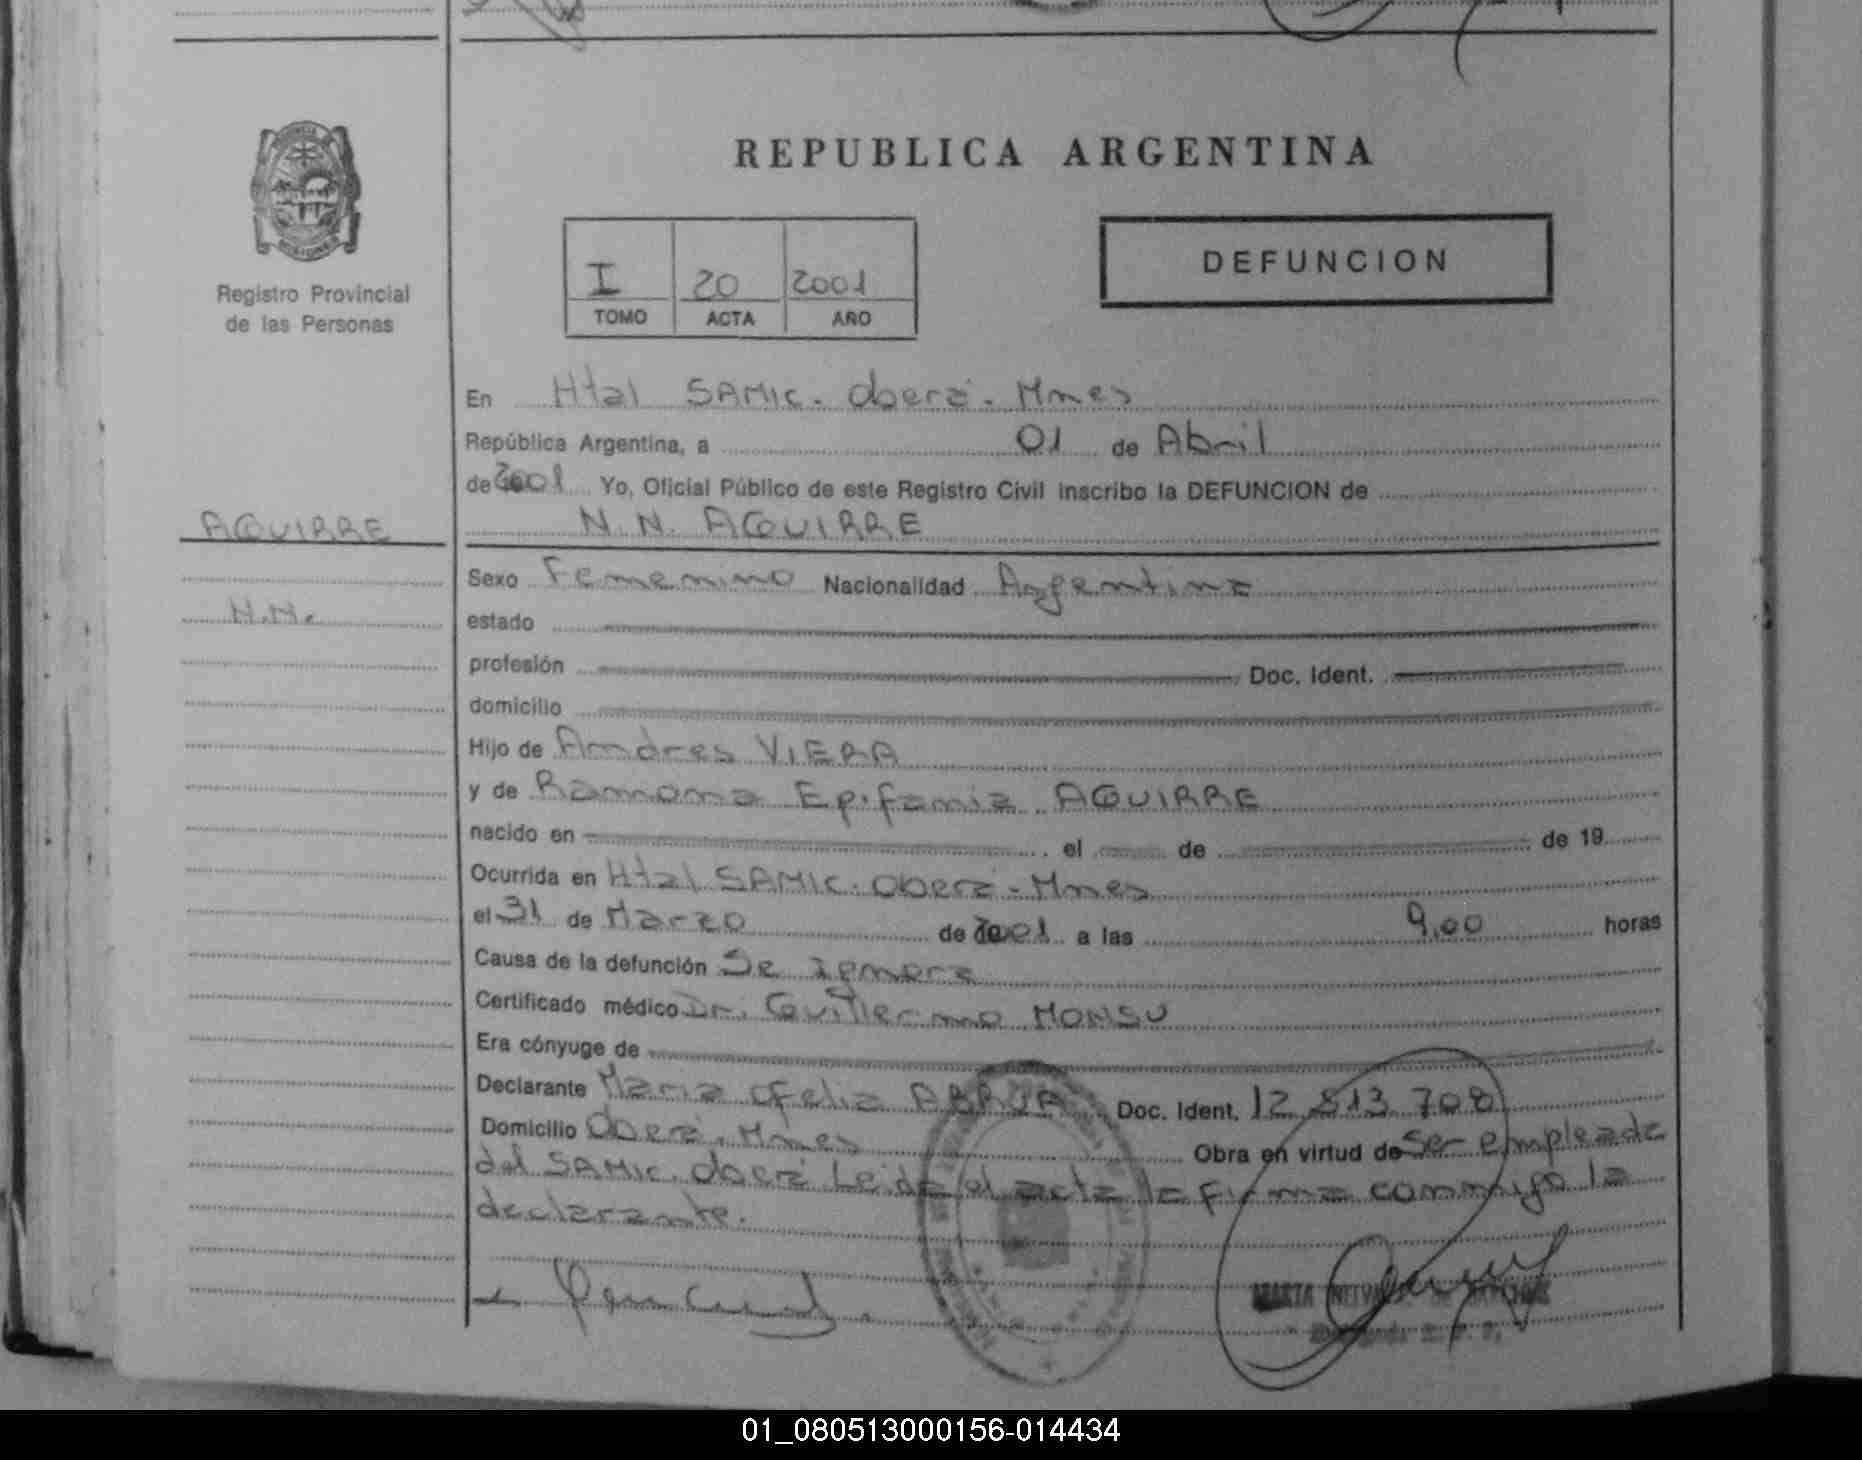 REPUBLICA ARGENTINA
MISIONES
Registro Provincial
de las Personas
I 20 2001
TOMO ACTA AÑO
DEFUNCION
En Htal SAMIC. Oberá. Mnes
República Argentina, a 01 de Abril
de 2001 Yo, Oficial Público de este Registro Civil inscribo la DEFUNCION de
AGUIRRE
N. N. AGUIRRE
Sexo Femenino Nacionalidad Argentina
N.N.
estado
profesión Doc. Ident.
domicilio
Hijo de Andres VIERA
y de Ramona Epifania AGUIRRE
nacido en el de de 19
Ocurrida en Htal SAMIC. Oberá - Mnes
el 31 de Marzo de 2001 a las 9,00 horas
Causa de la defunción Se Ignora
Certificado médico Dr. Guillermo MONSU
Era cónyuge de
Declarante Maria Ofelia Doc. Ident. 12 813 708
Domicilio Oberá. Mnes Obra en virtud de Ser empleada
del SAMIC. Oberá Leida el acta la firma conmigo la
declarante.
01_080513000156-014434